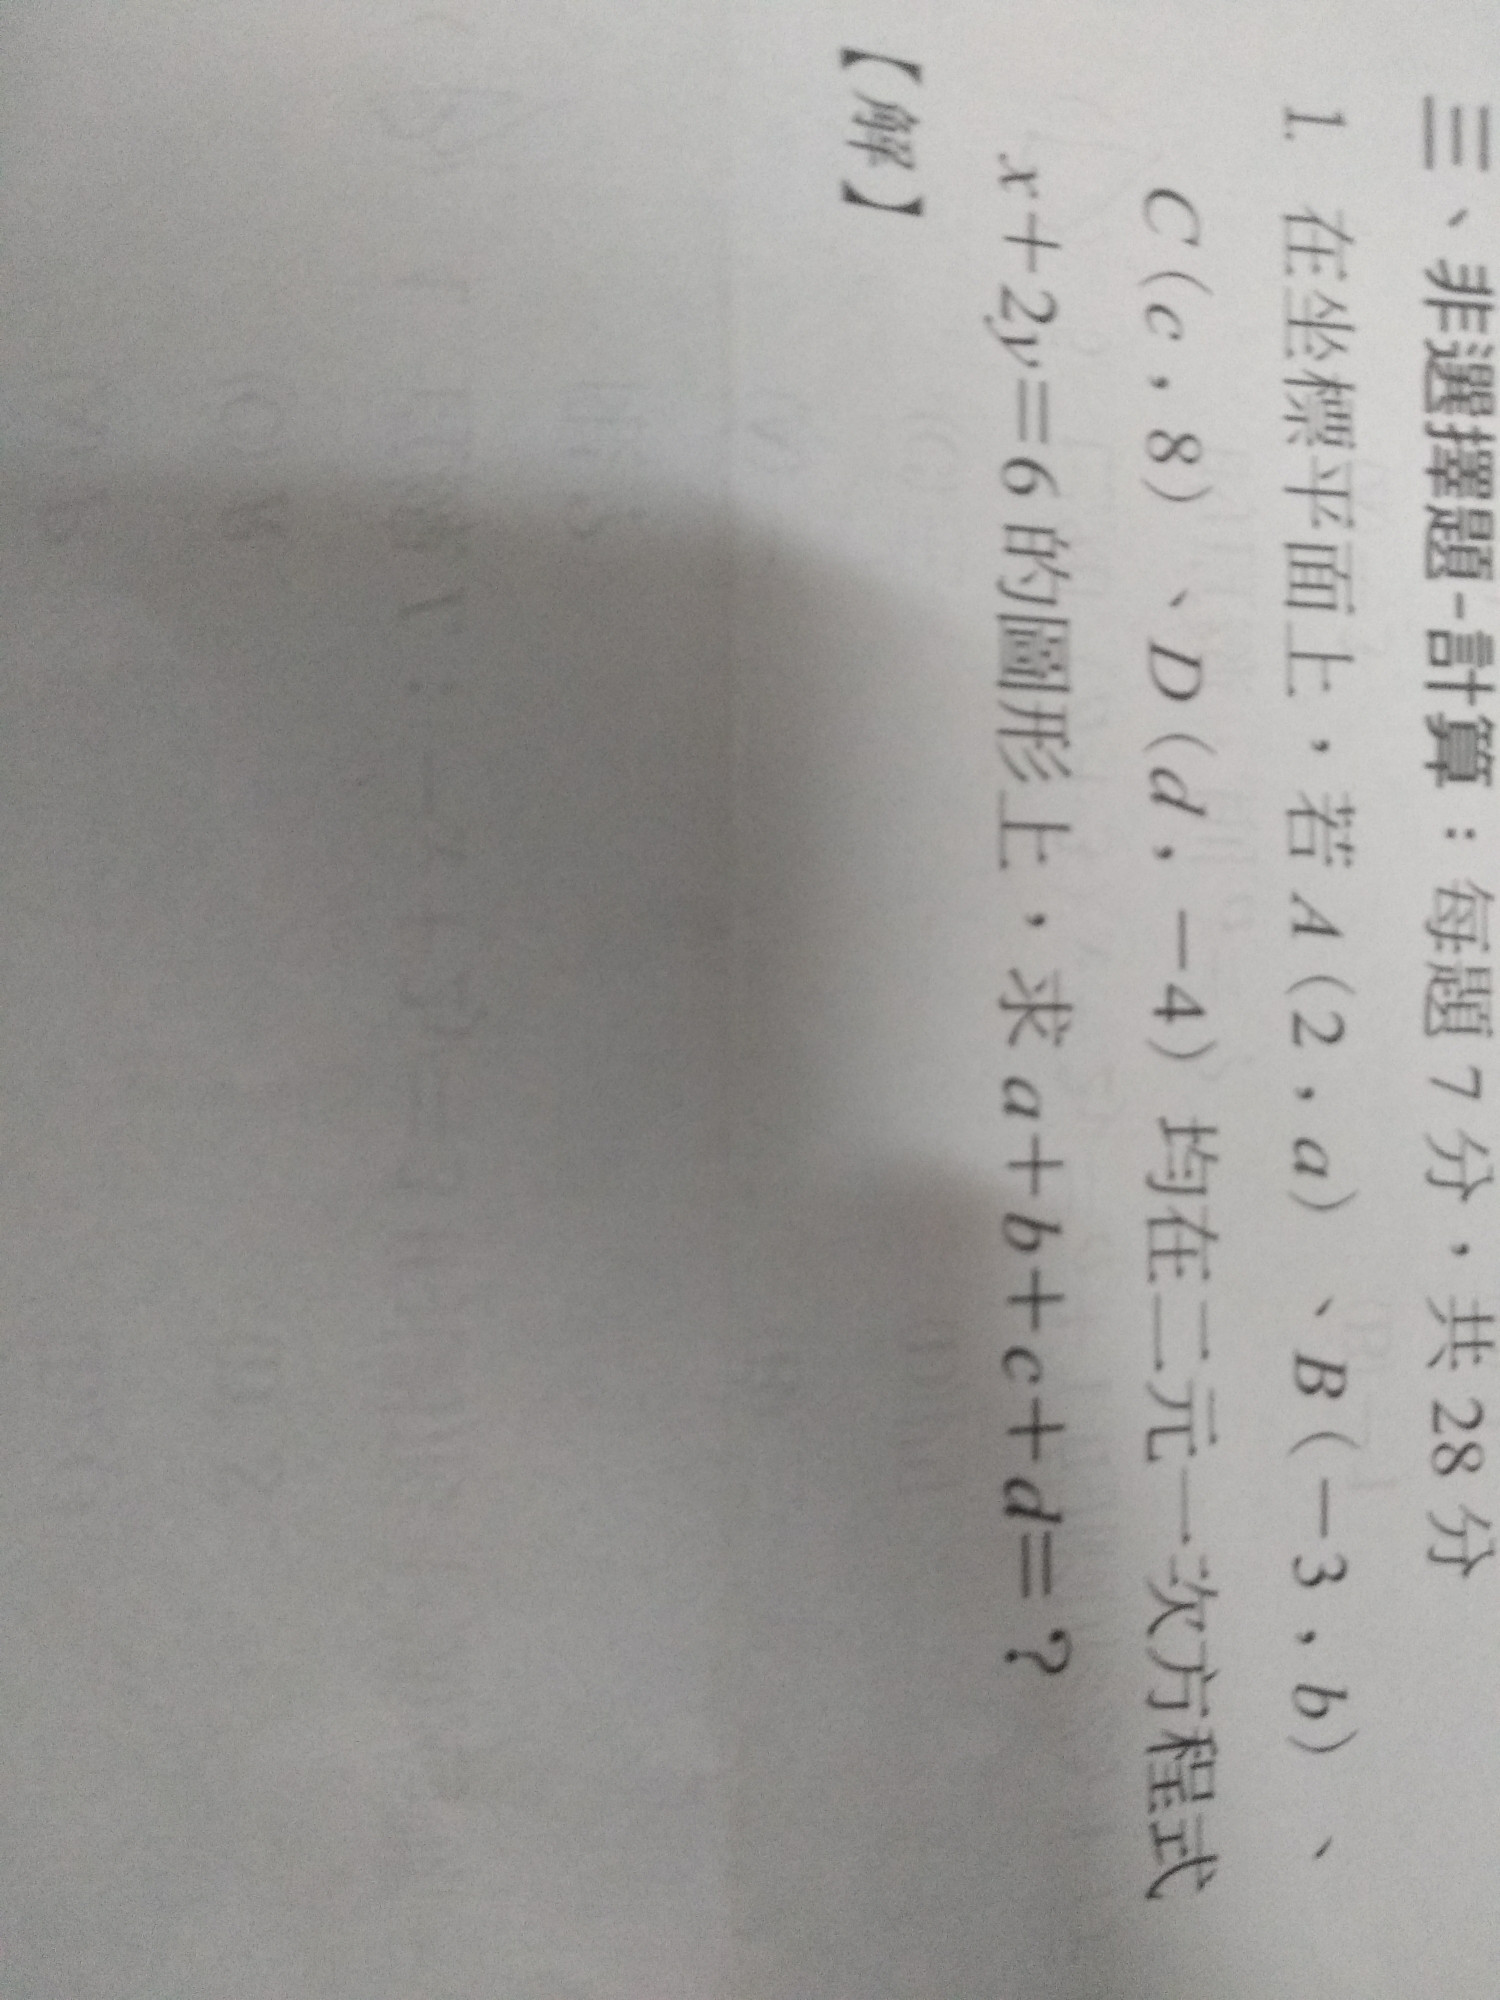 三、非選擇題-計算：每題7分，共28分
1. 在坐標平面上，若A(2，a)、B(-3，b)、
C(c，8)、D(d，-4)均在二元一次方程式
x+2y=6的圖形上，求a+b+c+d=？
【解】